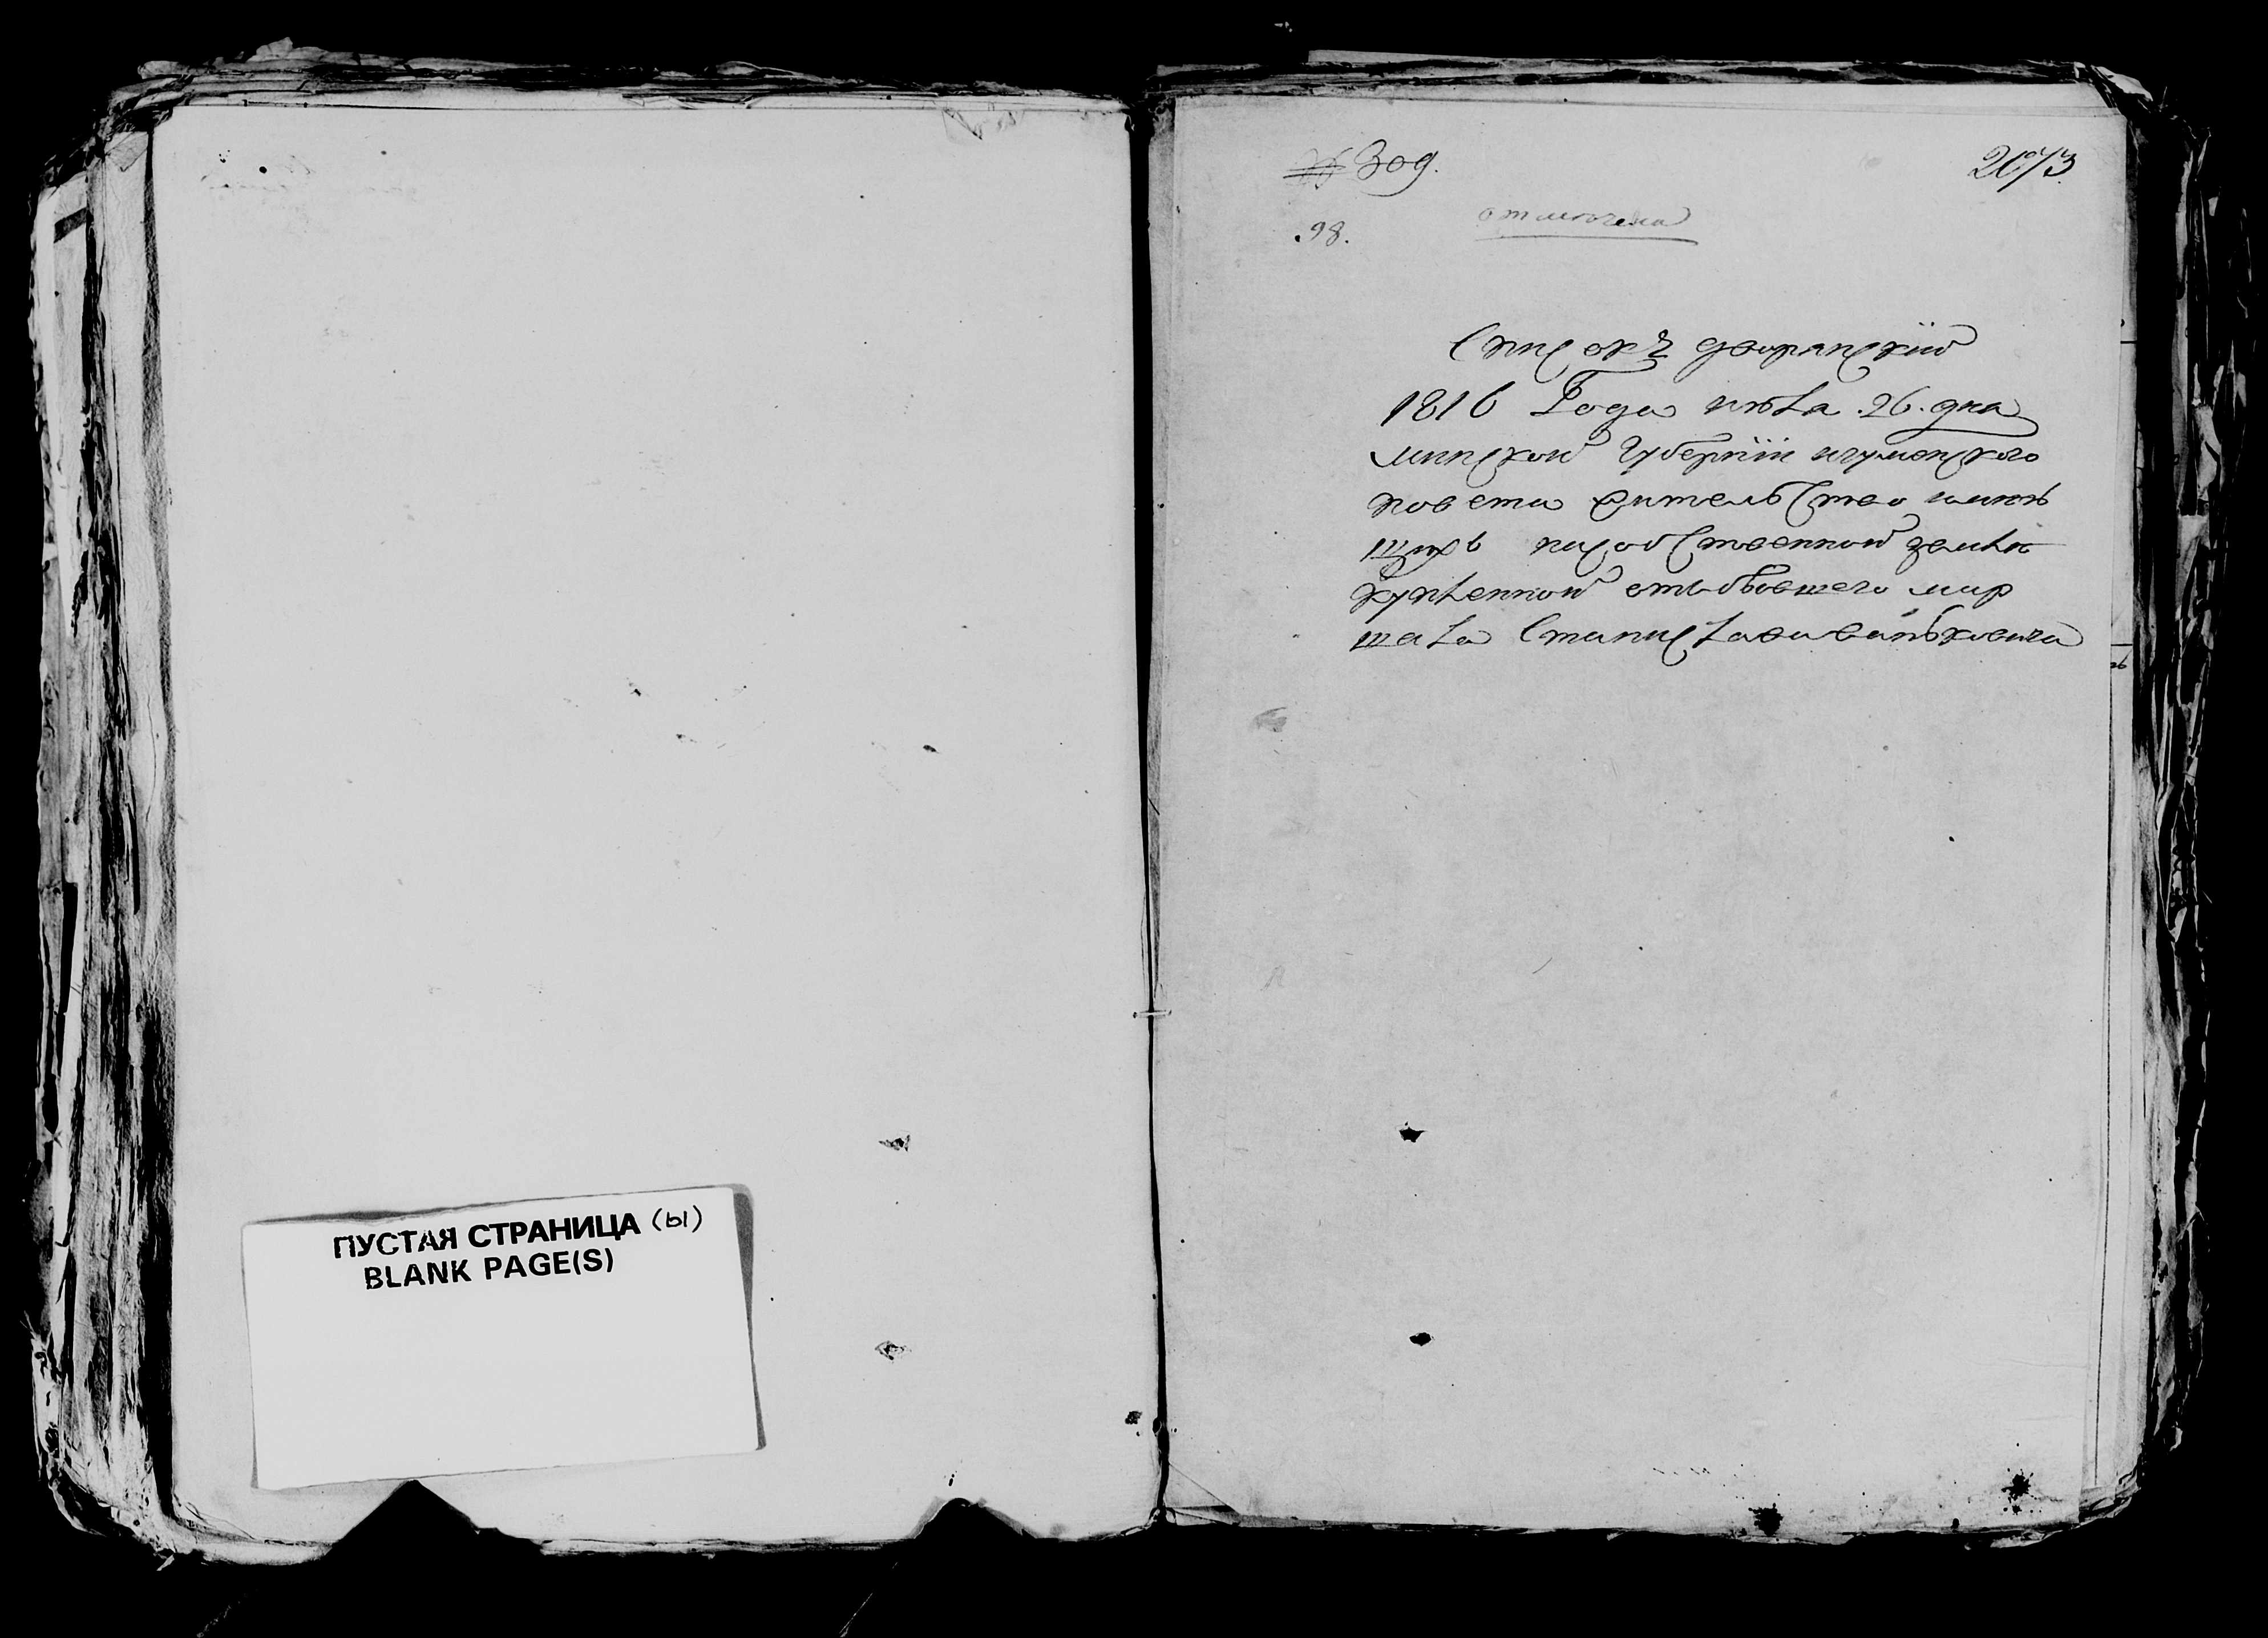 ПУСТАЯ СТРАНИЦА (ы)
BLANK PAGE(S)
309.
2073.
98.
отмечена
Списокъ дворянскій
1816 Года июла .26. дна
минской Губерніи игуменского
повета жительство имею
щихъ на собственной земли
купленной отъ бывшего мар
шала Станислава Ваньковича